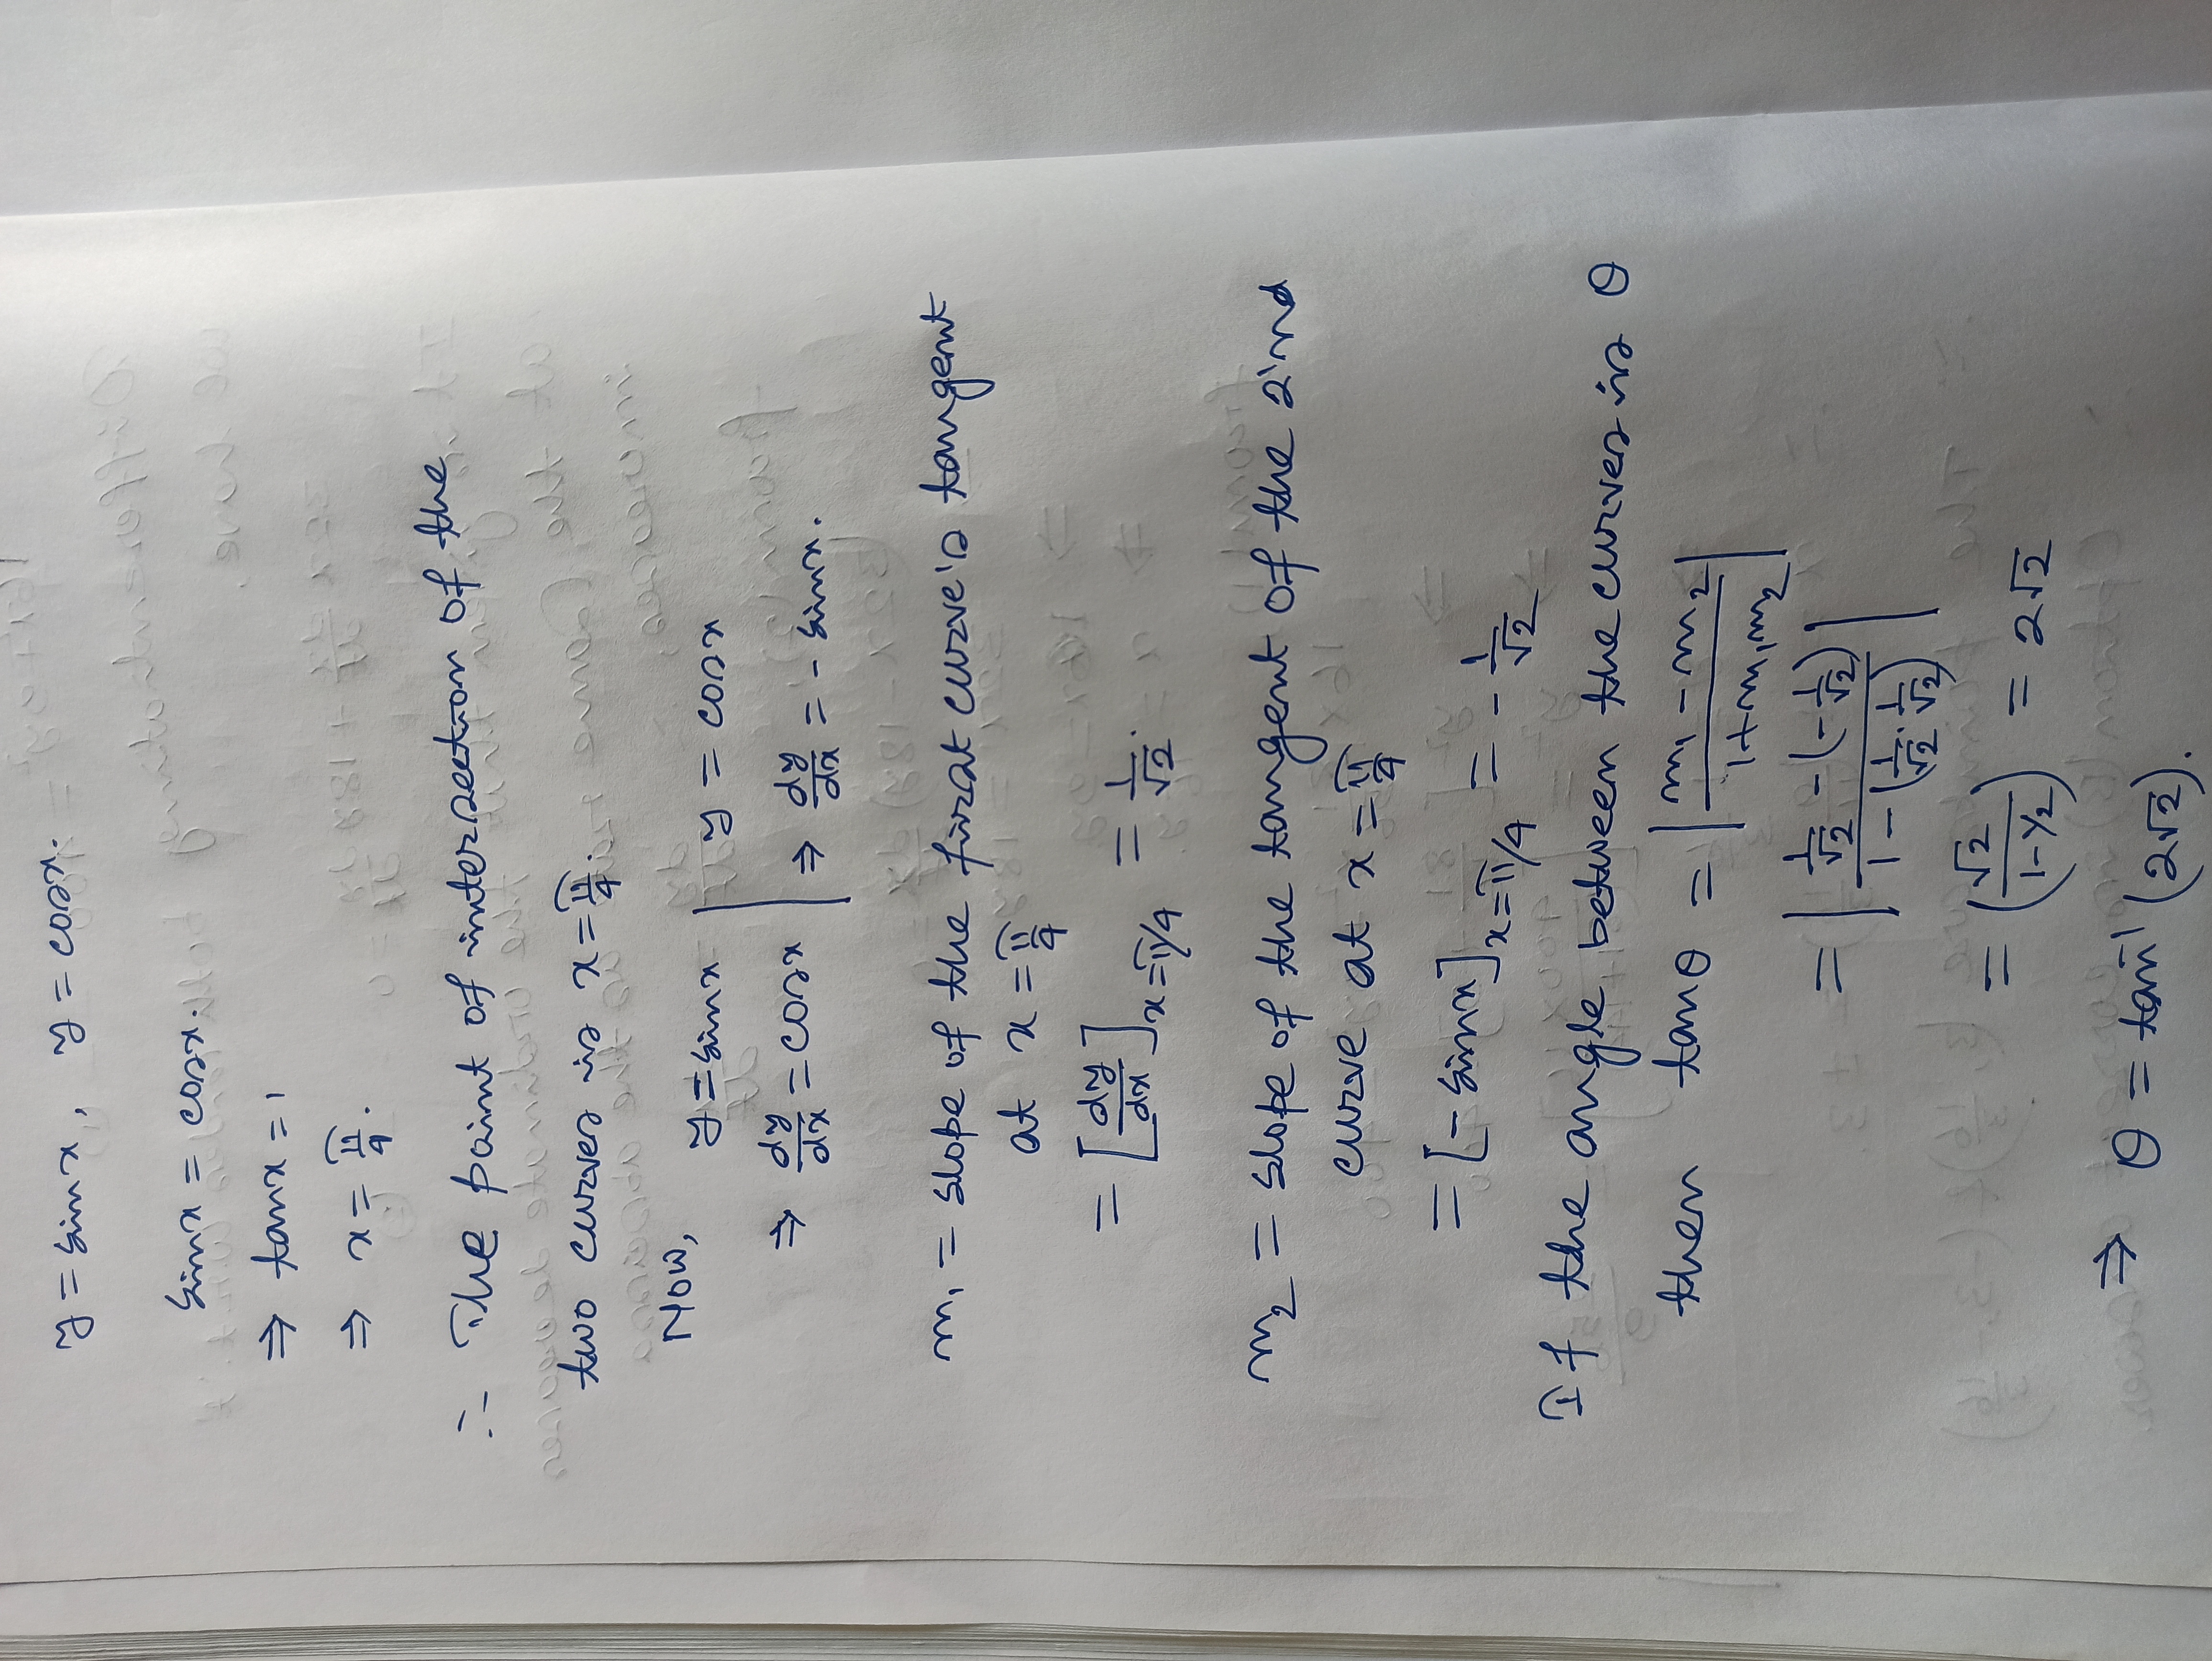 y = sinx, y = cosx.
sinx = cosx.
⇒ tanx = 1
⇒ x = π/4.
∴ The point of intersection of the
two curves is x = π/4.
Now, y = sinx | y = cosx
⇒ dy/dx = cosx | ⇒ dy/dx = - sinx.
m₁ = slope of the first curve's tangent
at x = π/4
= [dy/dx]x=π/4 = 1/√2.
m₂ = slope of the tangent of the 2'nd
curve at x = π/4
= [- sinx]x=π/4 = - 1/√2
If the angle between the curves is θ
then tanθ = |(m₁ - m₂)/(1 + m₁m₂)|
= |(1/√2 - (-1/√2))/(1 - (1/√2 · 1/√2))|
= (√2/(1 - 1/2)) = 2√2
⇒ θ = tan⁻¹(2√2).